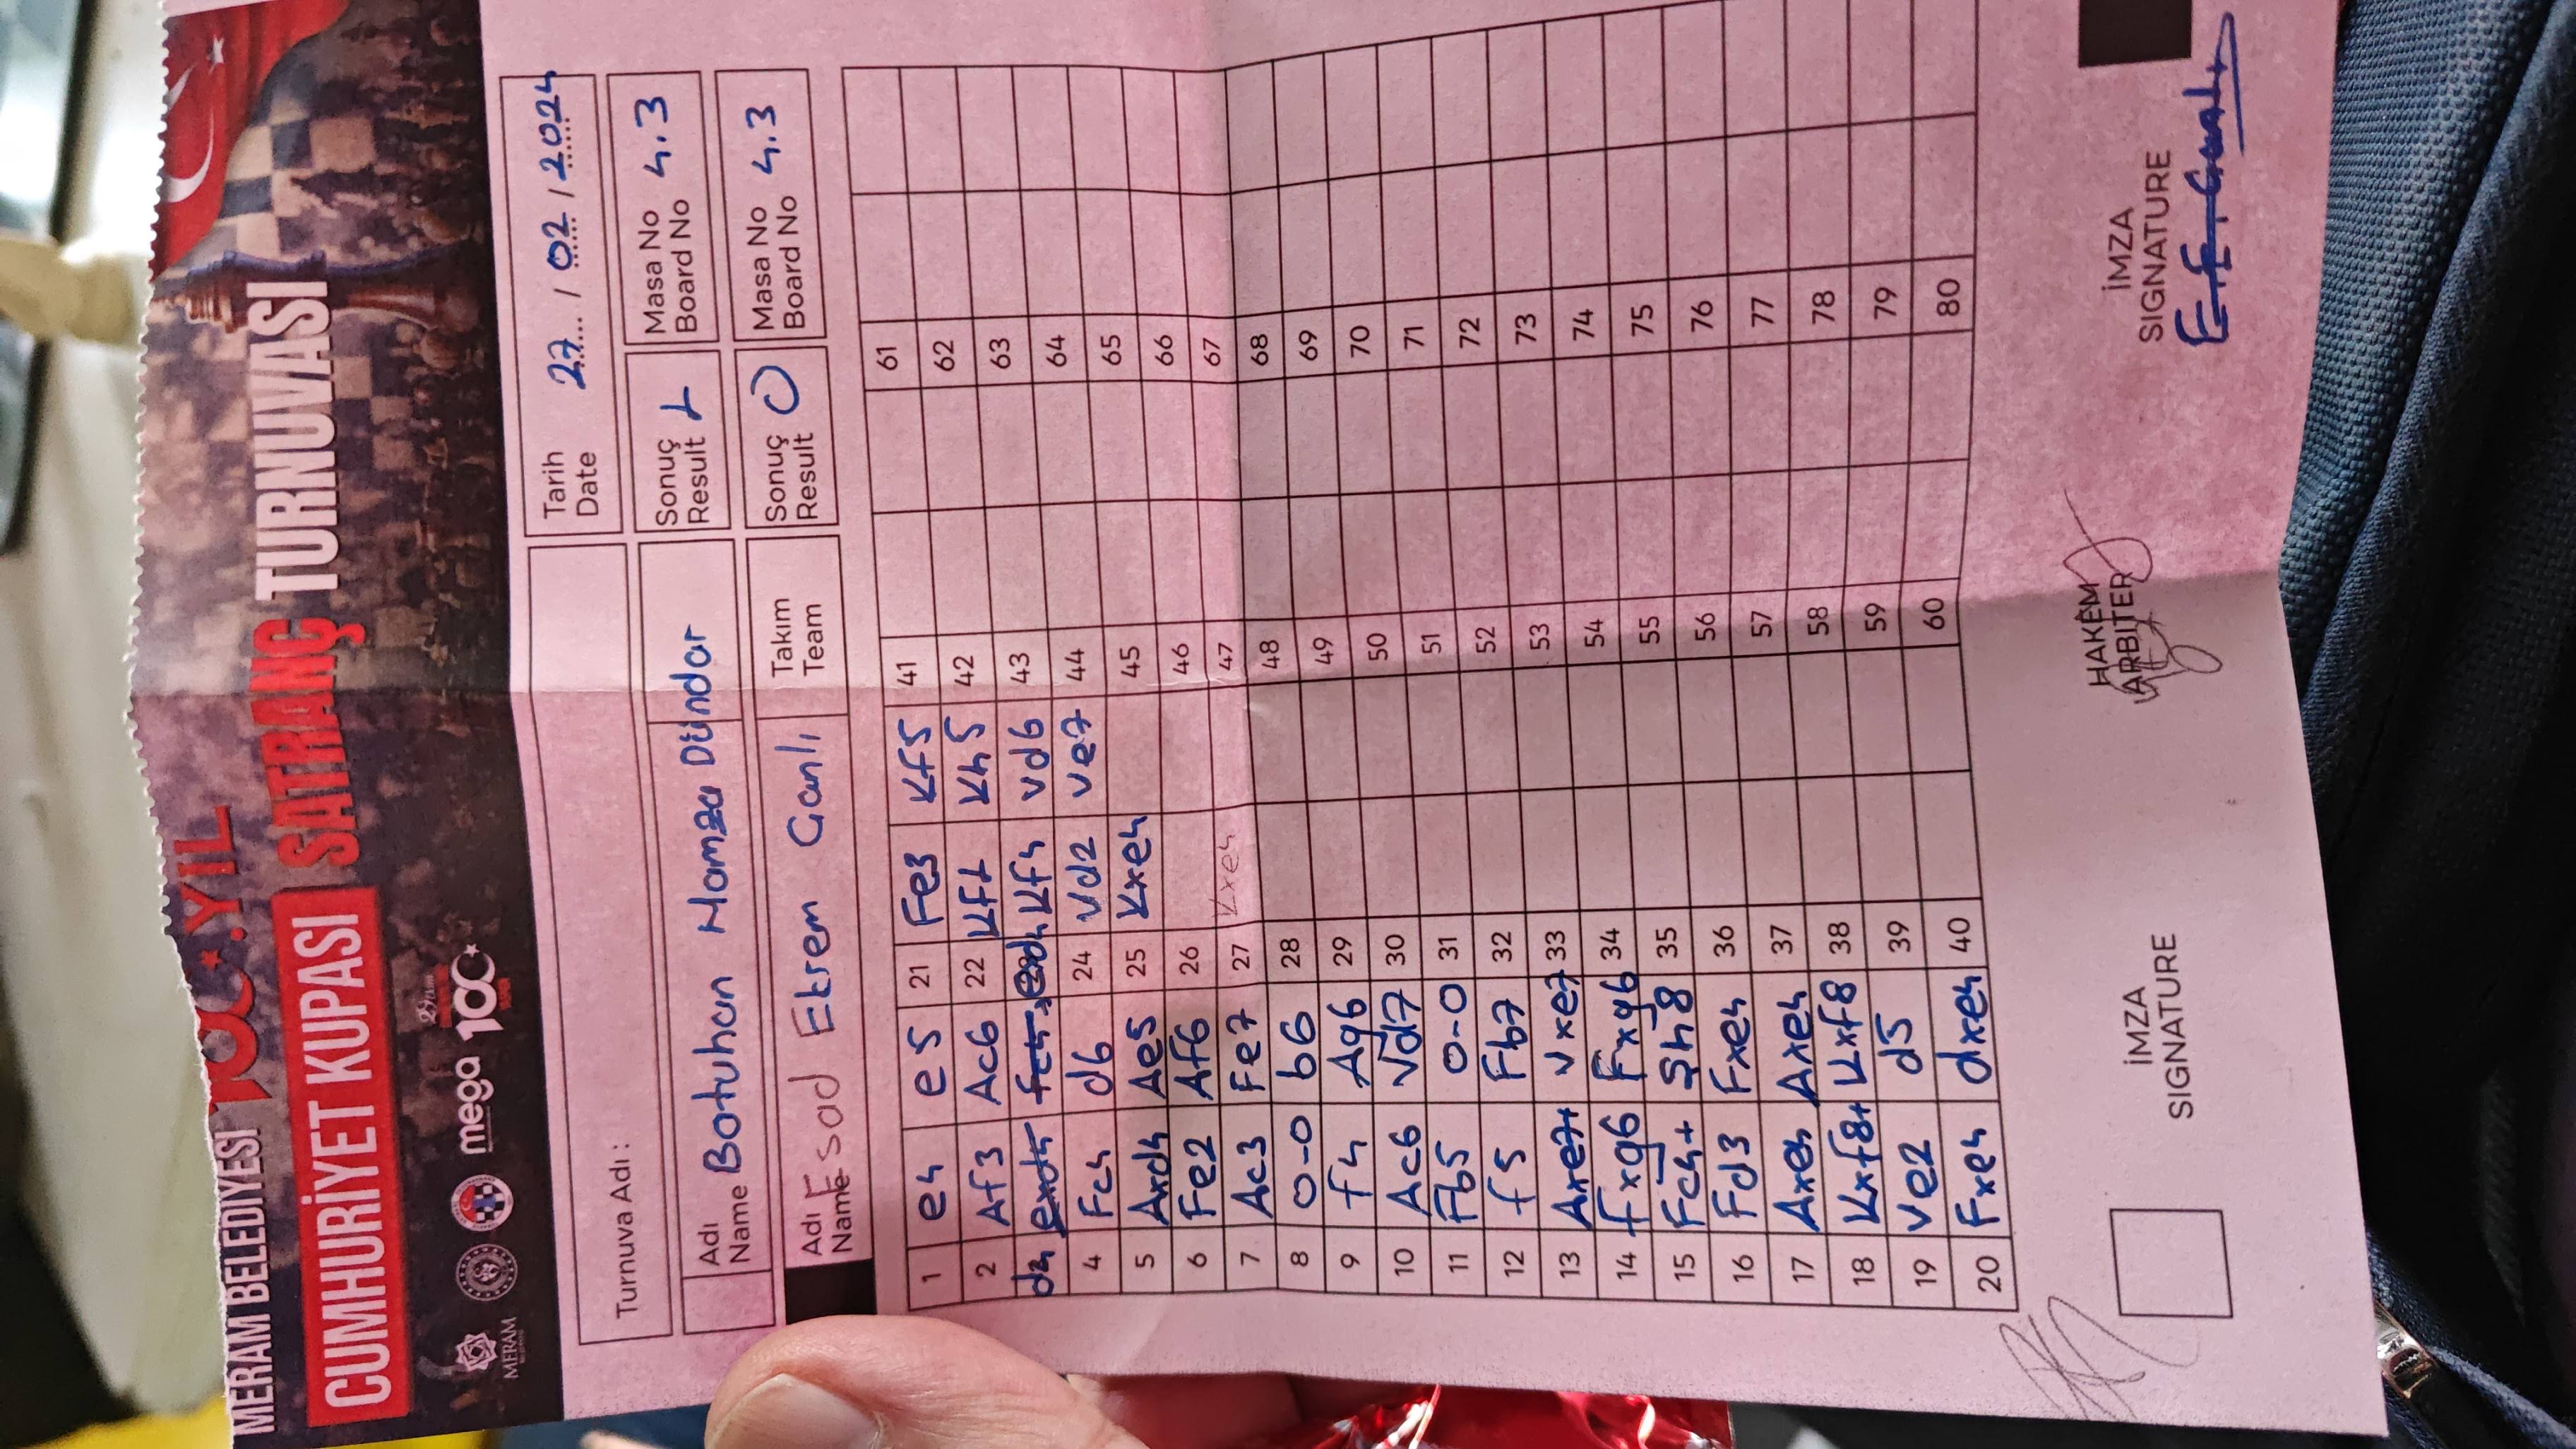 MERAM BELEDİYESİ 100.YIL
CUMHURİYET KUPASI SATRANÇ TURNUVASI
MERAM mega 100
Turnuva Adı :
Tarih
Date 27 / 02 / 2024
Adı
Name Batuhan Hamza Dündar
Sonuç
Result 1
Masa No
Board No 4.3
Adı
Name Esad Ekrem Canlı
Takım
Team
Sonuç
Result 0
Masa No
Board No 4.3
1 e4 e5 21 Fe3 Kf5 41 61
2 Af3 Ac6 22 Kf1 Kh5 42 62
d4 exd4 Kf4 Vd6 43 63
4 Fc4 d6 24 Vd2 Ve7 44 64
5 Axd4 Ae5 25 Kxe4 45 65
6 Fe2 Af6 26 46 66
7 Ac3 Fe7 27 Kxe4 47 67
8 0-0 b6 28 48 68
9 f4 Ag6 29 49 69
10 Ac6 Vd7 30 50 70
11 Fb5 0-0 31 51 71
12 f5 Fb7 32 52 72
13 Axe7+ Vxe7 33 53 73
14 fxg6 Fxg6 34 54 74
15 Fc4+ Şh8 35 55 75
16 Fd3 Fxe4 36 56 76
17 Axe4 Axe4 37 57 77
18 Kxf8+ Kxf8 38 58 78
19 Ve2 d5 39 59 79
20 Fxe4 dxe4 40 60 80
İMZA
SIGNATURE
HAKEM
ARBITER
İMZA
SIGNATURE